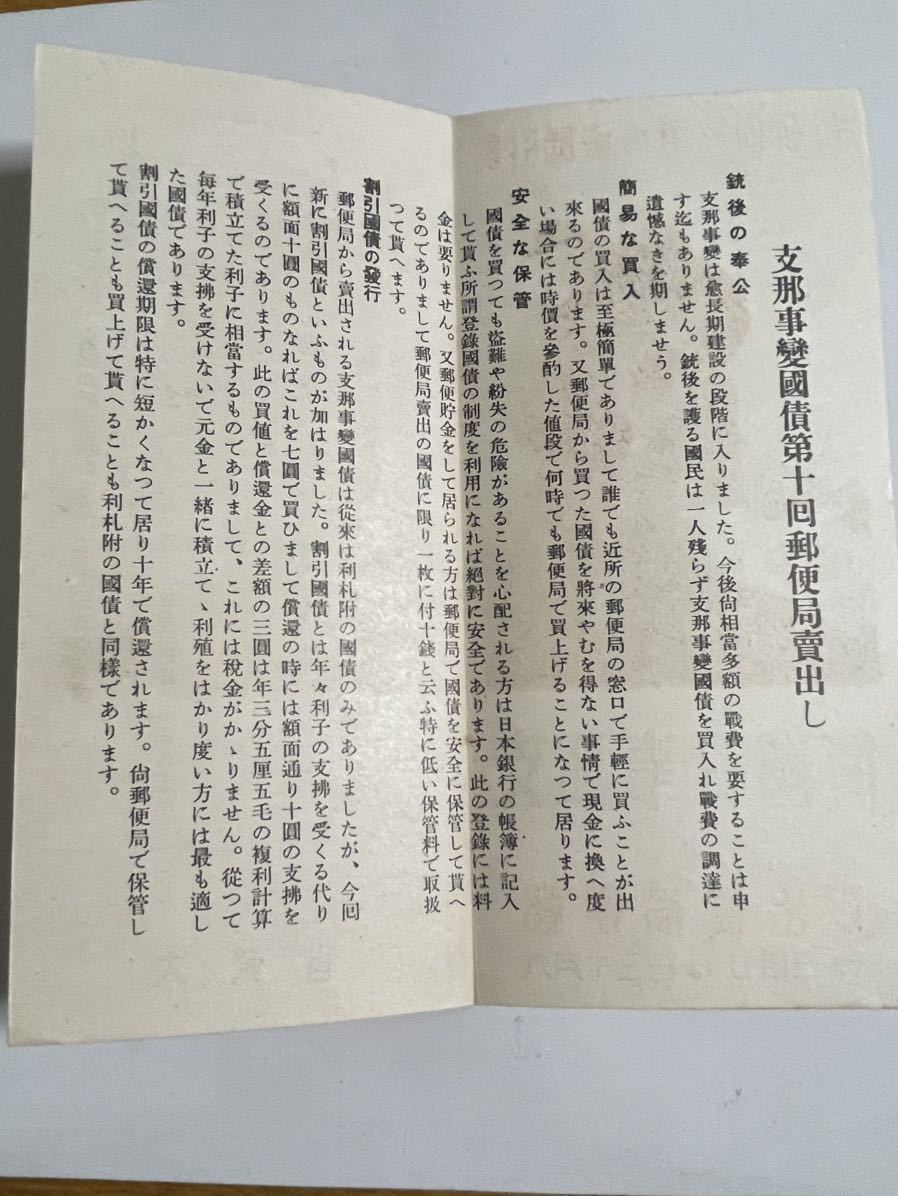 支那事變國債第十回郵便局賣出し
銃後の奉公
支那事變は愈長期建設の段階に入りました。今後尙相當多額の戰費を要することは申
す迄もありません。銃後を護る國民は一人残らず支那事變國債を買入れ戰費の調達に
遺憾なきを期しませう。
簡易な買入
國債の買入は至極簡單でありまして誰でも近所の郵便局の窓口で手輕に買ふことが出
來るのであります。又郵便局から買つた國債を將來やむを得ない事情で現金に換へ度
い場合には時價を參酌した値段で何時でも郵便局で買上げることになつて居ります。
安全な保管
國債を買つても盜難や紛失の危險があることを心配される方は日本銀行の帳簿に記入
して貰ふ所謂登錄國債の制度を利用になれば絕對に安全であります。此の登錄には料
金は要りません。又郵便貯金をして居られる方は郵便局で國債を安全に保管して貰へ
るのでありまして郵便局賣出の國債に限り一枚に付十錢と云ふ特に低い保管料で取扱
つて貰へます。
割引國債の發行
郵便局から賣出される支那事變國債は從來は利札附の國債のみでありましたが、今回
新に割引國債といふものが加はりました。割引國債とは年々利子の支拂を受くる代り
に額面十圓のものなればこれを七圓で買ひまして償還の時には額面通り十圓の支拂を
受くるのであります。此の買値と償還金との差額の三圓は年三分五厘五毛の複利計算
で積立てた利子に相當するものでありまして、これには税金がかゝりません。從つて
毎年利子の支拂を受けないで元金と一緖に積立てゝ利殖をはかり度い方には最も適し
た國債であります。
割引國債の償還期限は特に短かくなつて居り十年で償還されます。尙郵便局で保管し
て貰へることも買上げて貰へることも利札附の國債と同樣であります。